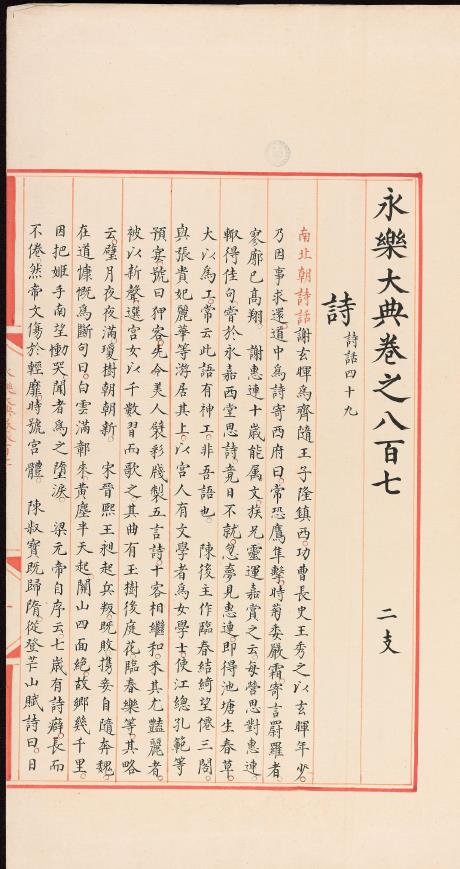 永樂大典卷之八百七 二支
詩 詩話四十九
南北朝詩話謝玄暉為齊隨王子隆鎮西功曹長史王秀之以玄暉年少
乃因事求還道中為詩寄西府曰常恐鷹隼擊時菊委嚴霜寄言罻羅者
寥廓已高翔 謝惠連十歲能属文族兄靈運嘉賞之云每營思對惠連
輙得佳句嘗於永嘉西堂思詩竟日不就忽夢見惠連即得池塘生春草
大以為工常云此語有神工非吾語也 陳後主作臨春結綺望僊三閣
與張貴妃麗華等游居其上以宮人有文學者為女學士使江總孔範等
預宴號曰狎客先令美人襞彩牋製五言詩十客相繼和采其尤豔麗者
被以新聲選宮女以千數習而歌之其曲有玉樹後庭花臨春樂等其略
云璧月夜夜滿瓊樹朝朝新 宋晉熙王昶起兵叛既敗携妾自隨奔魏
在道慷慨為斷句曰白雲滿鄣來黃塵半天起關山四面絕故鄉幾千里
因把姬手南望慟哭聞者為之墮淚 梁元帝自序云七歲有詩癖長而
不倦然帝文傷於輕靡時號宮體 陳叔寳既歸隋從登芒山賦詩曰日